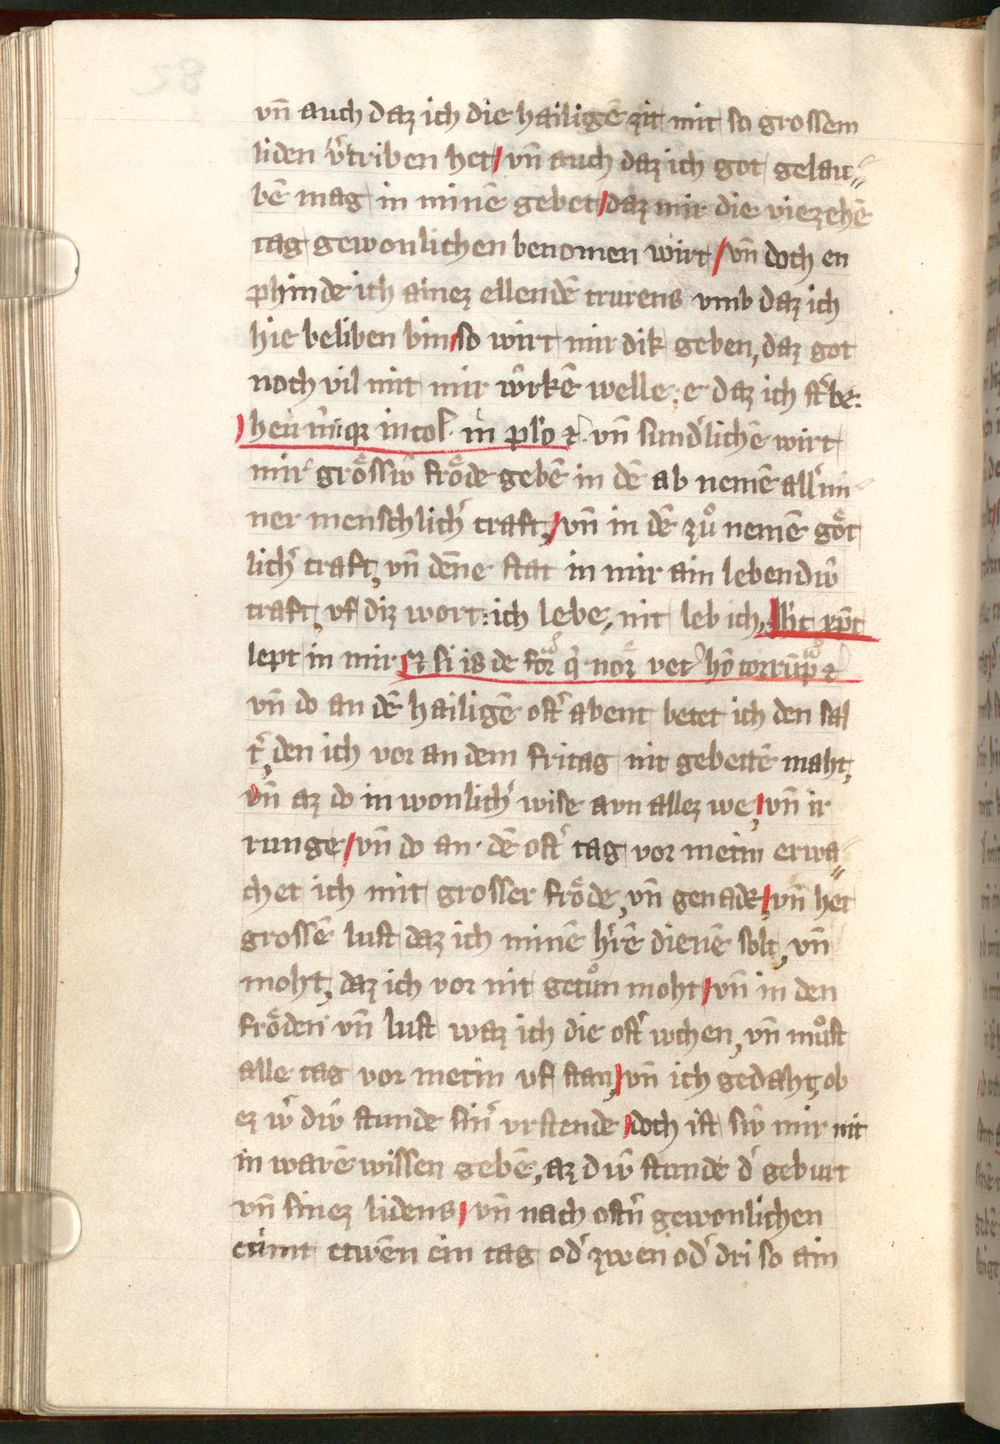 vn̄ auch daz ich die hailigē zit mit so grossem
liden v̓triben het / vn̄ auch daz ich got gelau⸗
bē mag in minē gebet / daz mir die viezehē
tag gewonlichen benomen wirt / vn̄ doch en
phinde ich ainez ellendē trurens vmb daz ich
hie beliben bin / so wirt mir dik geben, daz got
noch vil mit mir wv̂rkē welle, e daz ich st̓be.
heu m̄ qz incol. m̄ plo ⁊. vn̄ sund̓lichē wirt
mir grôssiv̂ frôde gebē in dē ab nemē all̓ mi⸗
ner menschlich̓ craft, / vn̄ in dē zuͦ nemē gôt
lich̓ craft, vn̄ dēne stat in mir ain lebendiv̂
craft, vf diz wort: ich lebe, nit leb ich,
lept in mir Et si is de for q̓ nor̄ vet̓ hō corrūp ⁊
vn̄ do an dē hailigē ost̓ abent betet ich den sal
t̓, den ich vor an dem fritag nit gebettē maht,
vn̄ az do in wonlich̓ wise avn allez we, / vn̄ ir
runge / vn̄ do an dē ost̓ tag vor metin erwa⸗
chet ich mit grosser frôde, vn̄ genade, / vn̄ het
grossē lust daz ich minē h̓rē dienē solt, vn̄
moht, daz ich vor nit getuͦn moht / vn̄ in den
frôden vn̄ lust waz ich die ost̓ wchen, vn̄ muͦst
alle tag vor metin vf stan, / vn̄ ich gedaht, ob
ez w̓ div̂ stunde sin̓ vrstende / doch ist siv̂ mir nit
in warē wissen gebē, az div̂ stunde d̓ geburt
vn̄ sinez lidens / vn̄ nach ost̓n gewonlichen
cumt etwēn ein tag od̓ zwen od̓ dri so ain